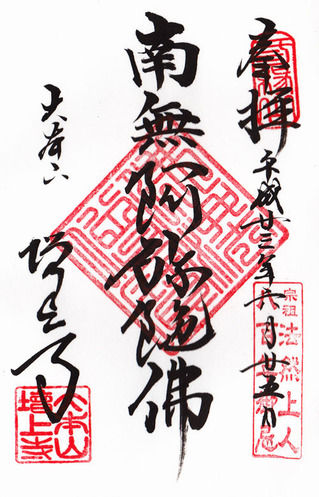 奉拝
平成廿三年六月廿五日
宗祖法然上人
南無阿弥陀佛
大本山
増上寺
大本山
増上寺